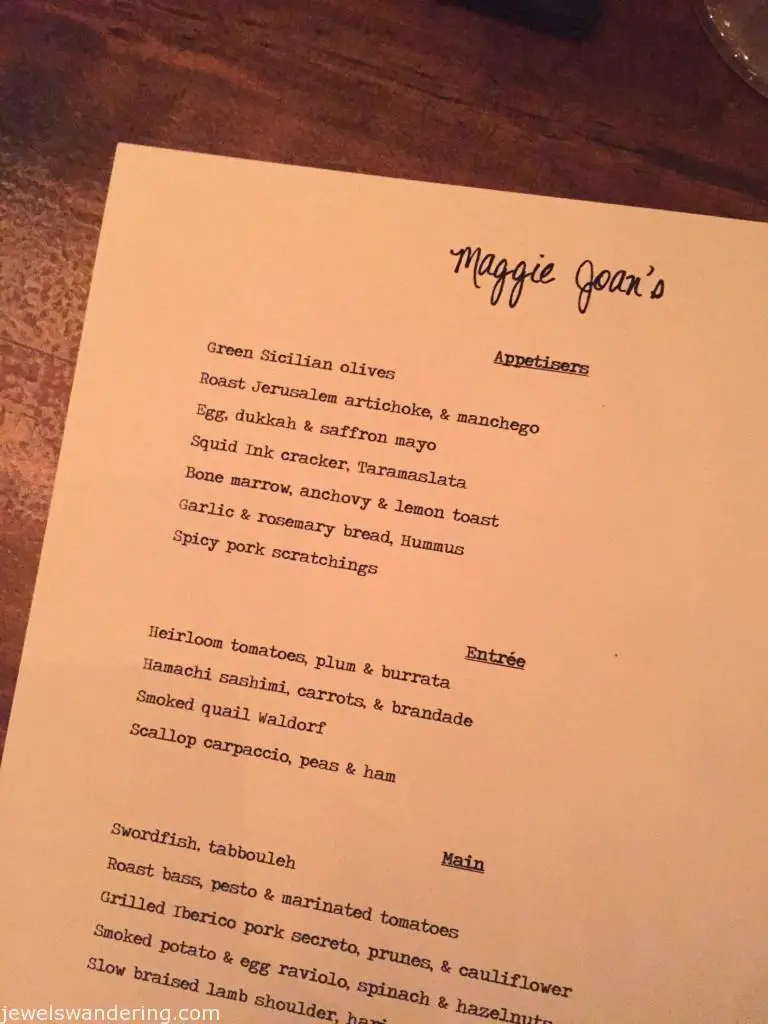 Maggie Joan's
Appetisers
Green Sicilian olives
Roast Jerusalem artichoke, & manchego
Egg, dukkah & saffron mayo
Squid Ink cracker, Taramaslata
Bone marrow, anchovy & lemon toast
Garlic & rosemary bread, Hummus
Spicy pork scratchings
Entrée
Heirloom tomatoes, plum & burrata
Hamachi sashimi, carrots, & brandade
Smoked quail Waldorf
Scallop carpaccio, peas & ham
Main
Swordfish, tabbouleh
Roast bass, pesto & marinated tomatoes
Grilled Iberico pork secreto, prunes, & cauliflower
Smoked potato & egg raviolo, spinach & hazelnuts
Slow braised lamb shoulder,
jewelswandering.com